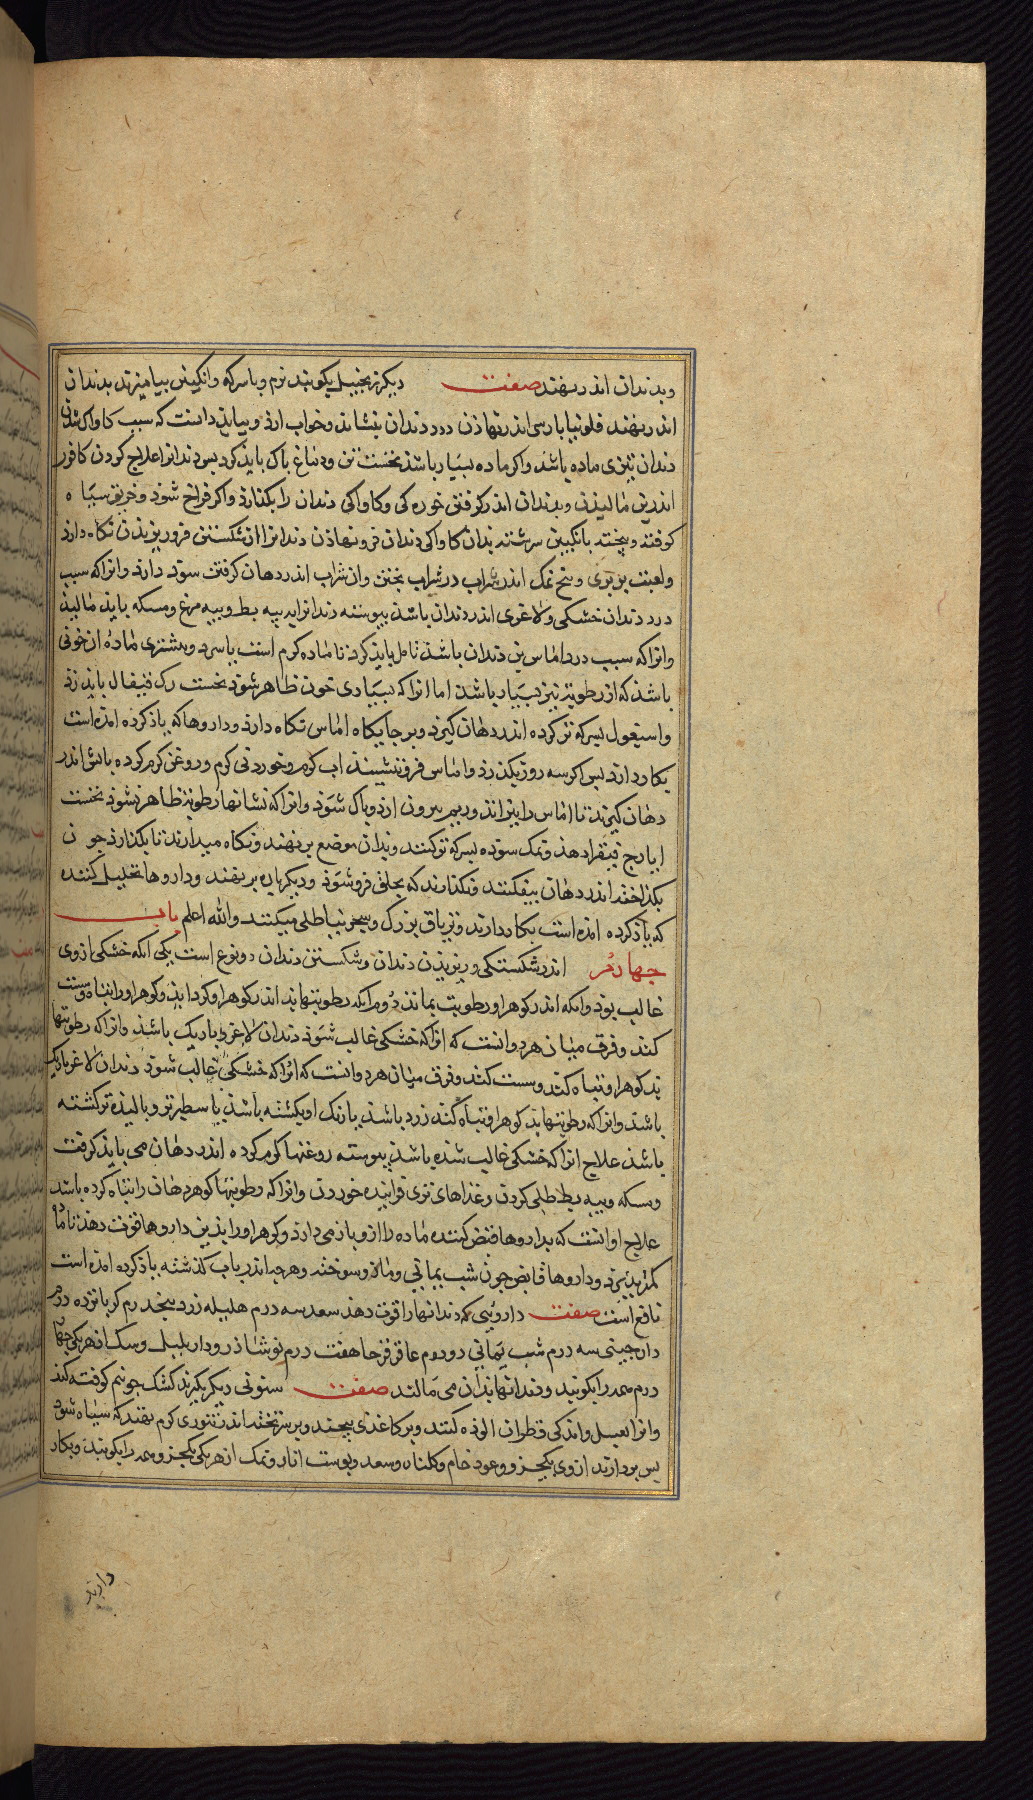 وبدندان اندر نهند صفت دیکر زنجبیل بکوبند نرم و با سرکه و انکبین بیامیزند بدندان
اندر نهند فلونیا پارسی اندر نهاذن درد دندان بنشاند وخواب ارد وبباید دانست که سبب کاواک شدن
دندان تیزی ماده باشد واکر ماده بسیار باشد نخست تن ودماغ پاک باید کرد پس دندانرا علاج کردن کافور
اندرین مالیدن وبدندان اندر کرفتن خوره کی وکاواکی دندان را بکذارد واکر فراخ شود وخربق سیاه
کوفته وبیخته بانکبین سرشته بدان کاواکی دندان فرو نهاذن دندانرا از شکستن فرو ریزیدن نکاه دارد
ولعبت بربری وسخ نمک اندر شراب در شراب بختن وان شراب اندر دهان کرفتن سود دارد وانرا که سبب
درد دندان خشکی ولاغری اندر دندان باشد پیوسته دندانرا به پیه بط وپیه مرغ ومسکه باید مالید
وانرا که سبب درد اماس بن دندان باشد تامل باید کرد تا ماده کرم است یا سرد وبیشتری ماده ان خونی
باشد که از رطوبة نیز بسیار باشد اما انرا که بسیادی خون ظاهر شود نخست رک قیفال باید زد
واسپغول بسرکه تر کرده اندر دهان کیرد وبر جایکاه اماس نکاه دارد ودارو‌ها که یاذ کرده امده است
بکار دارد پس اکر سه روز بکذرد واماس فرو ننشیند اب کرم وخوردنی کرم وروغن کرم کرده باید اندر
دهان کیرد تا اماس را بپزاند وریم بیرون ارد وپاک شود وانرا که نشانهاء رطوبة ظاهر شود نخست
ایارج فیقرا دهند ونمک سوده بسرکه تر کنند وبدان موضع بر نهند ونکاه میدارند تا بکدازد چون
بکداخت اندر دهان بیفکند ونکذارند که بحلق فرو شود ودیکر باره بر نهند ودارو‌ها تحلیل کننده
که یاذ کرده امده است بکار دارند وتریاق بزرک وسجزنیا طلی میکنند والله اعلم باب
چهارم اندر شکستکی وریزیدن دندان وشکستن دندان دو نوع است یکی انکه خشکی از وی
غالب بود وانکه اندر کوهر او رطوبت بماند دوم انکه رطوبتها بد اندر کوهر او کرد اید وکوهر او را تباه وسست
کند وفرق میان هر دو انست که انرا که خشکی غالب شود دندان لاغر وباریک باشد وانرا که رطوبتها
بد کوهر او تباه کند وسست کند وفرق میان هر دو انست که انرا که خشکی غالب شود دندان لاغر باریک
باشد وانرا که رطوبتها بد کوهر او تباه کند زرد باشد یا رنک او بکشته باشد یا سطبرتر وبالیده تر کشته
باشد علاج انرا که خشکی غالب شده باشد پیوسته روغنها کرم کرده اندر دهان می باید کرفت
ومسکه وپیه بط طلی کردن وغذاهای تری فزاینده خوردن وانرا که رطوبتها کوهر دهان را تباه کرده باشد
علاج او انست که بدارو‌ها قبض کننده ماده را از و باز می دارد وکوهر او را بدین دارو‌ها قوت دهد تا ماده
کمتر پذیرد ودارو‌ها قابض چون شب یمانی ومازو سوخته وهرچه اندر باب کذشته یاذ کرده امده است
نافع است صفت دارویی که دندانها را قوت دهد سعد سه درم هلیله زرد پنجدرم کز پانزده درم
دارچینی سه درم شب یمانی دودرم عاقرقرحا هفت درم نوشاذر ودار پلپل وسک از هر یکی چهار
درم همه را بکوبند ودندانها بدان می مالند صفت سنونی دیکر بکیرند کشک جو نیم کوفته کنند
وانرا بعسل واندکی قطران الوده کنند وبر کاغذی پیچند وبر پختند اندر تنوری کرم نهند که سیاه شود
پس بردارند از وی یکجزو وعود خام وکلنار وسعد وپوست انار ونمک از هر یکی یکجزو همه را بکوبند وبکار
دارند